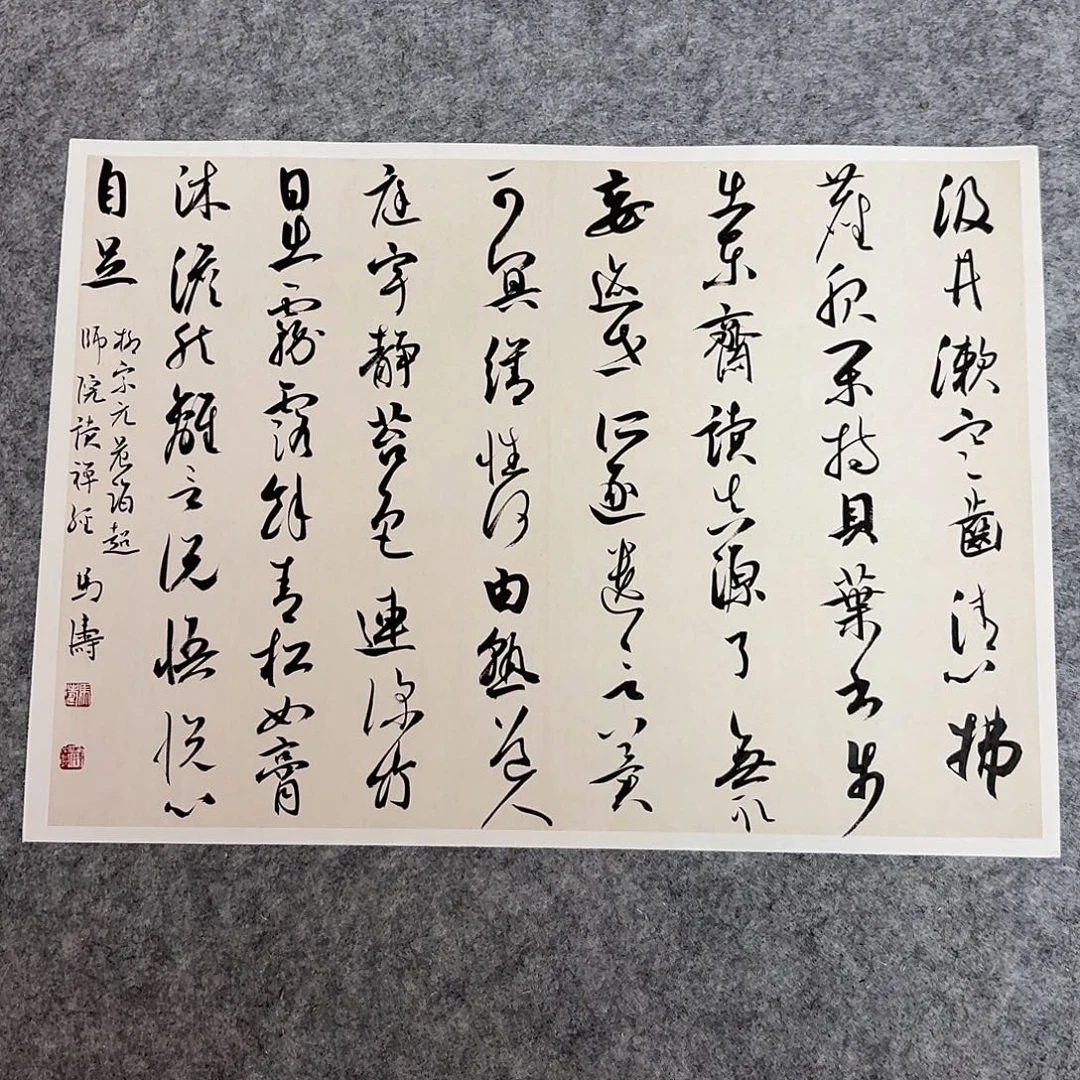 汲井漱寒齒清心拂
塵服閒持貝葉書步
出東齋讀真源了無取
妄迹世所逐遺言冀
可冥繕性何由熟道人
庭宇靜苔色連深竹
日出霧露餘青松如膏
沐澹然離言說悟悅心
自足
柳宗元晨詣超
師院讀禪經 馬濤